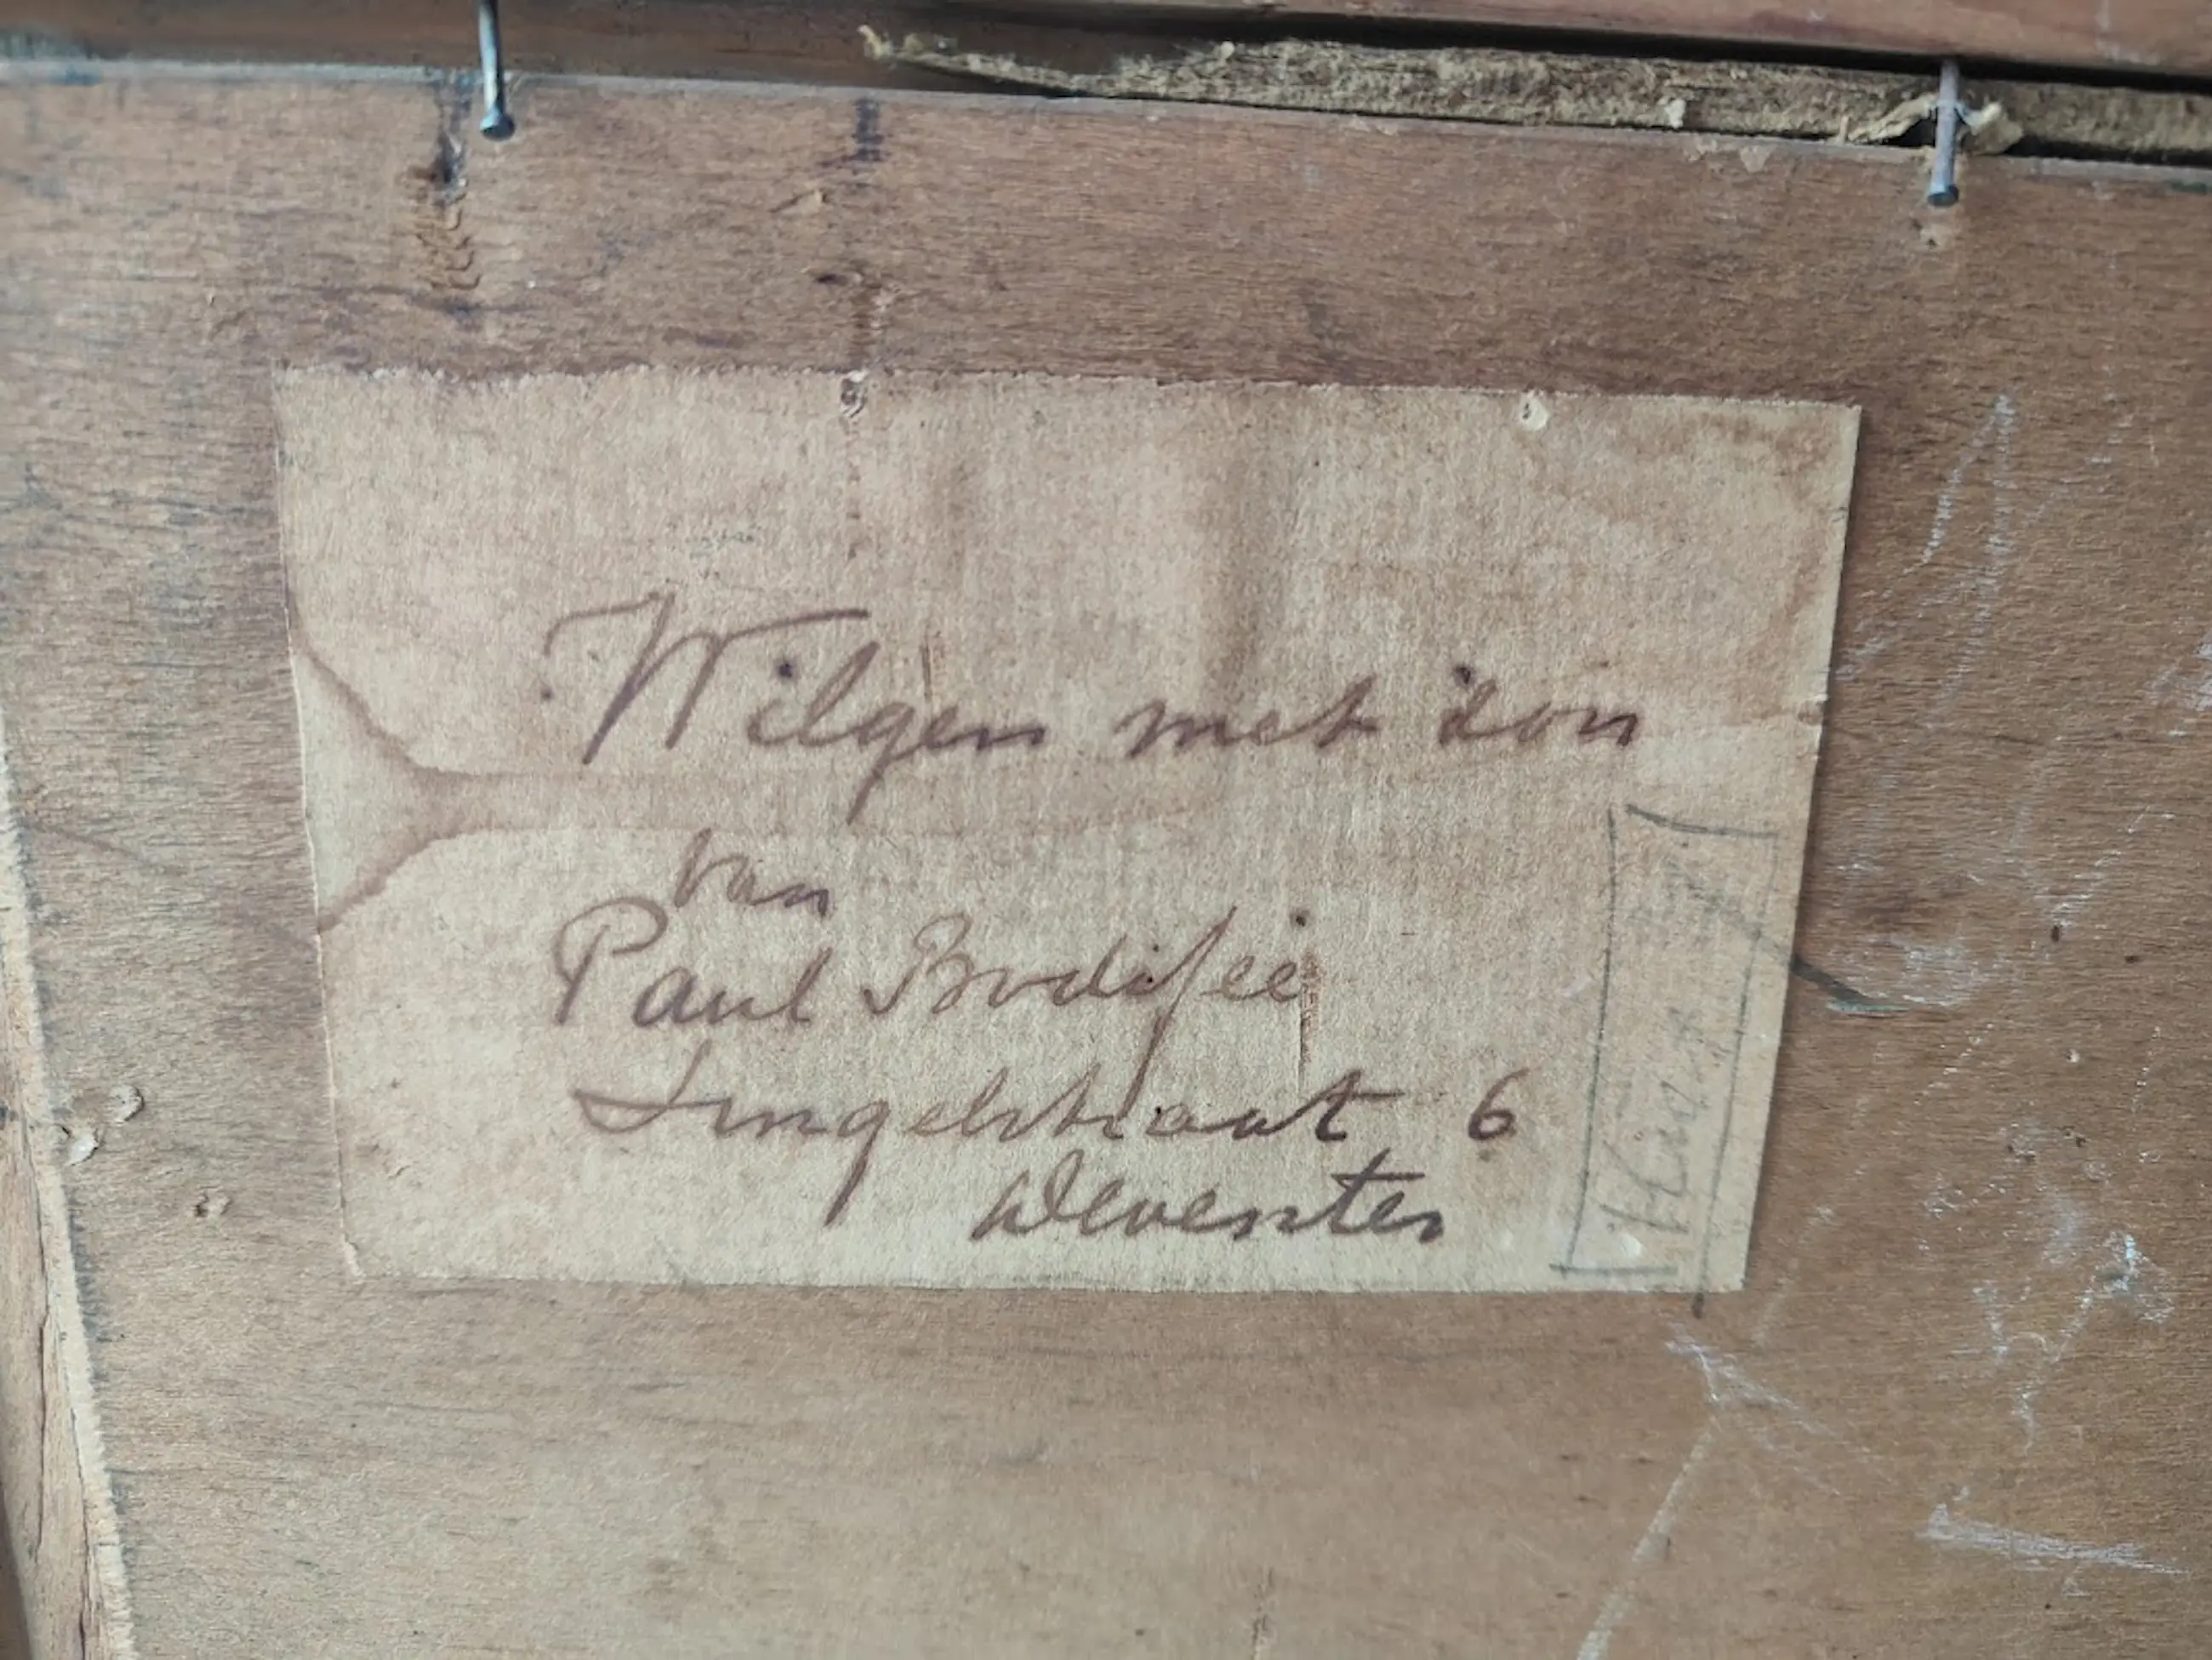 Wilgen met zon
van
Paul Bodifée
Singelstraat 6
Deventer